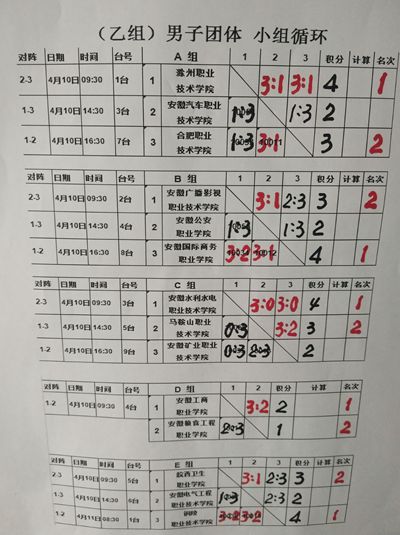 （乙组）男子团体 小组循环
对阵 日期 时间 台号 A 组 1 2 3 积分 计算 名次
2-3 4月10日 09:30 1台 1 滁州职业技术学院 3:1 3:1 4 1
1-3 4月10日 14:30 3台 2 安徽汽车职业技术学院 1:3 1:3 2
1-2 4月10日 16:30 7台 3 合肥职业技术学院 1:3 3:1 3 2
对阵 日期 时间 台号 B 组 1 2 3 积分 计算 名次
2-3 4月10日 09:30 2台 1 安徽广播影视职业技术学院 3:1 2:3 3 2
1-3 4月10日 14:30 4台 2 安徽公安职业学院 1:3 1:3 2
1-2 4月10日 16:30 8台 3 安徽国际商务职业学院 3:2 3:1 4 1
对阵 日期 时间 台号 C 组 1 2 3 积分 计算 名次
2-3 4月10日 09:30 3台 1 安徽水利水电职业技术学院 3:0 3:0 4 1
1-3 4月10日 14:30 5台 2 马鞍山职业技术学院 0:3 3:2 3 2
1-2 4月10日 16:30 9台 3 安徽矿业职业技术学院 0:3 2:3 2
对阵 日期 时间 台号 D 组 1 2 积分 计算 名次
1-2 4月10日 09:30 4台 1 安徽工商职业学院 3:2 2 1
2 安徽粮食工程职业学院 2:3 1 2
对阵 日期 时间 台号 E 组 1 2 3 积分 计算 名次
2-3 4月10日 09:30 5台 1 皖西卫生职业学院 3:1 2:3 3 2
1-3 4月10日 14:30 6台 2 安徽电气工程职业学院 1:3 2:3 2
1-2 4月11日 08:30 1台 3 铜陵职业学院 3:2 3:2 4 1